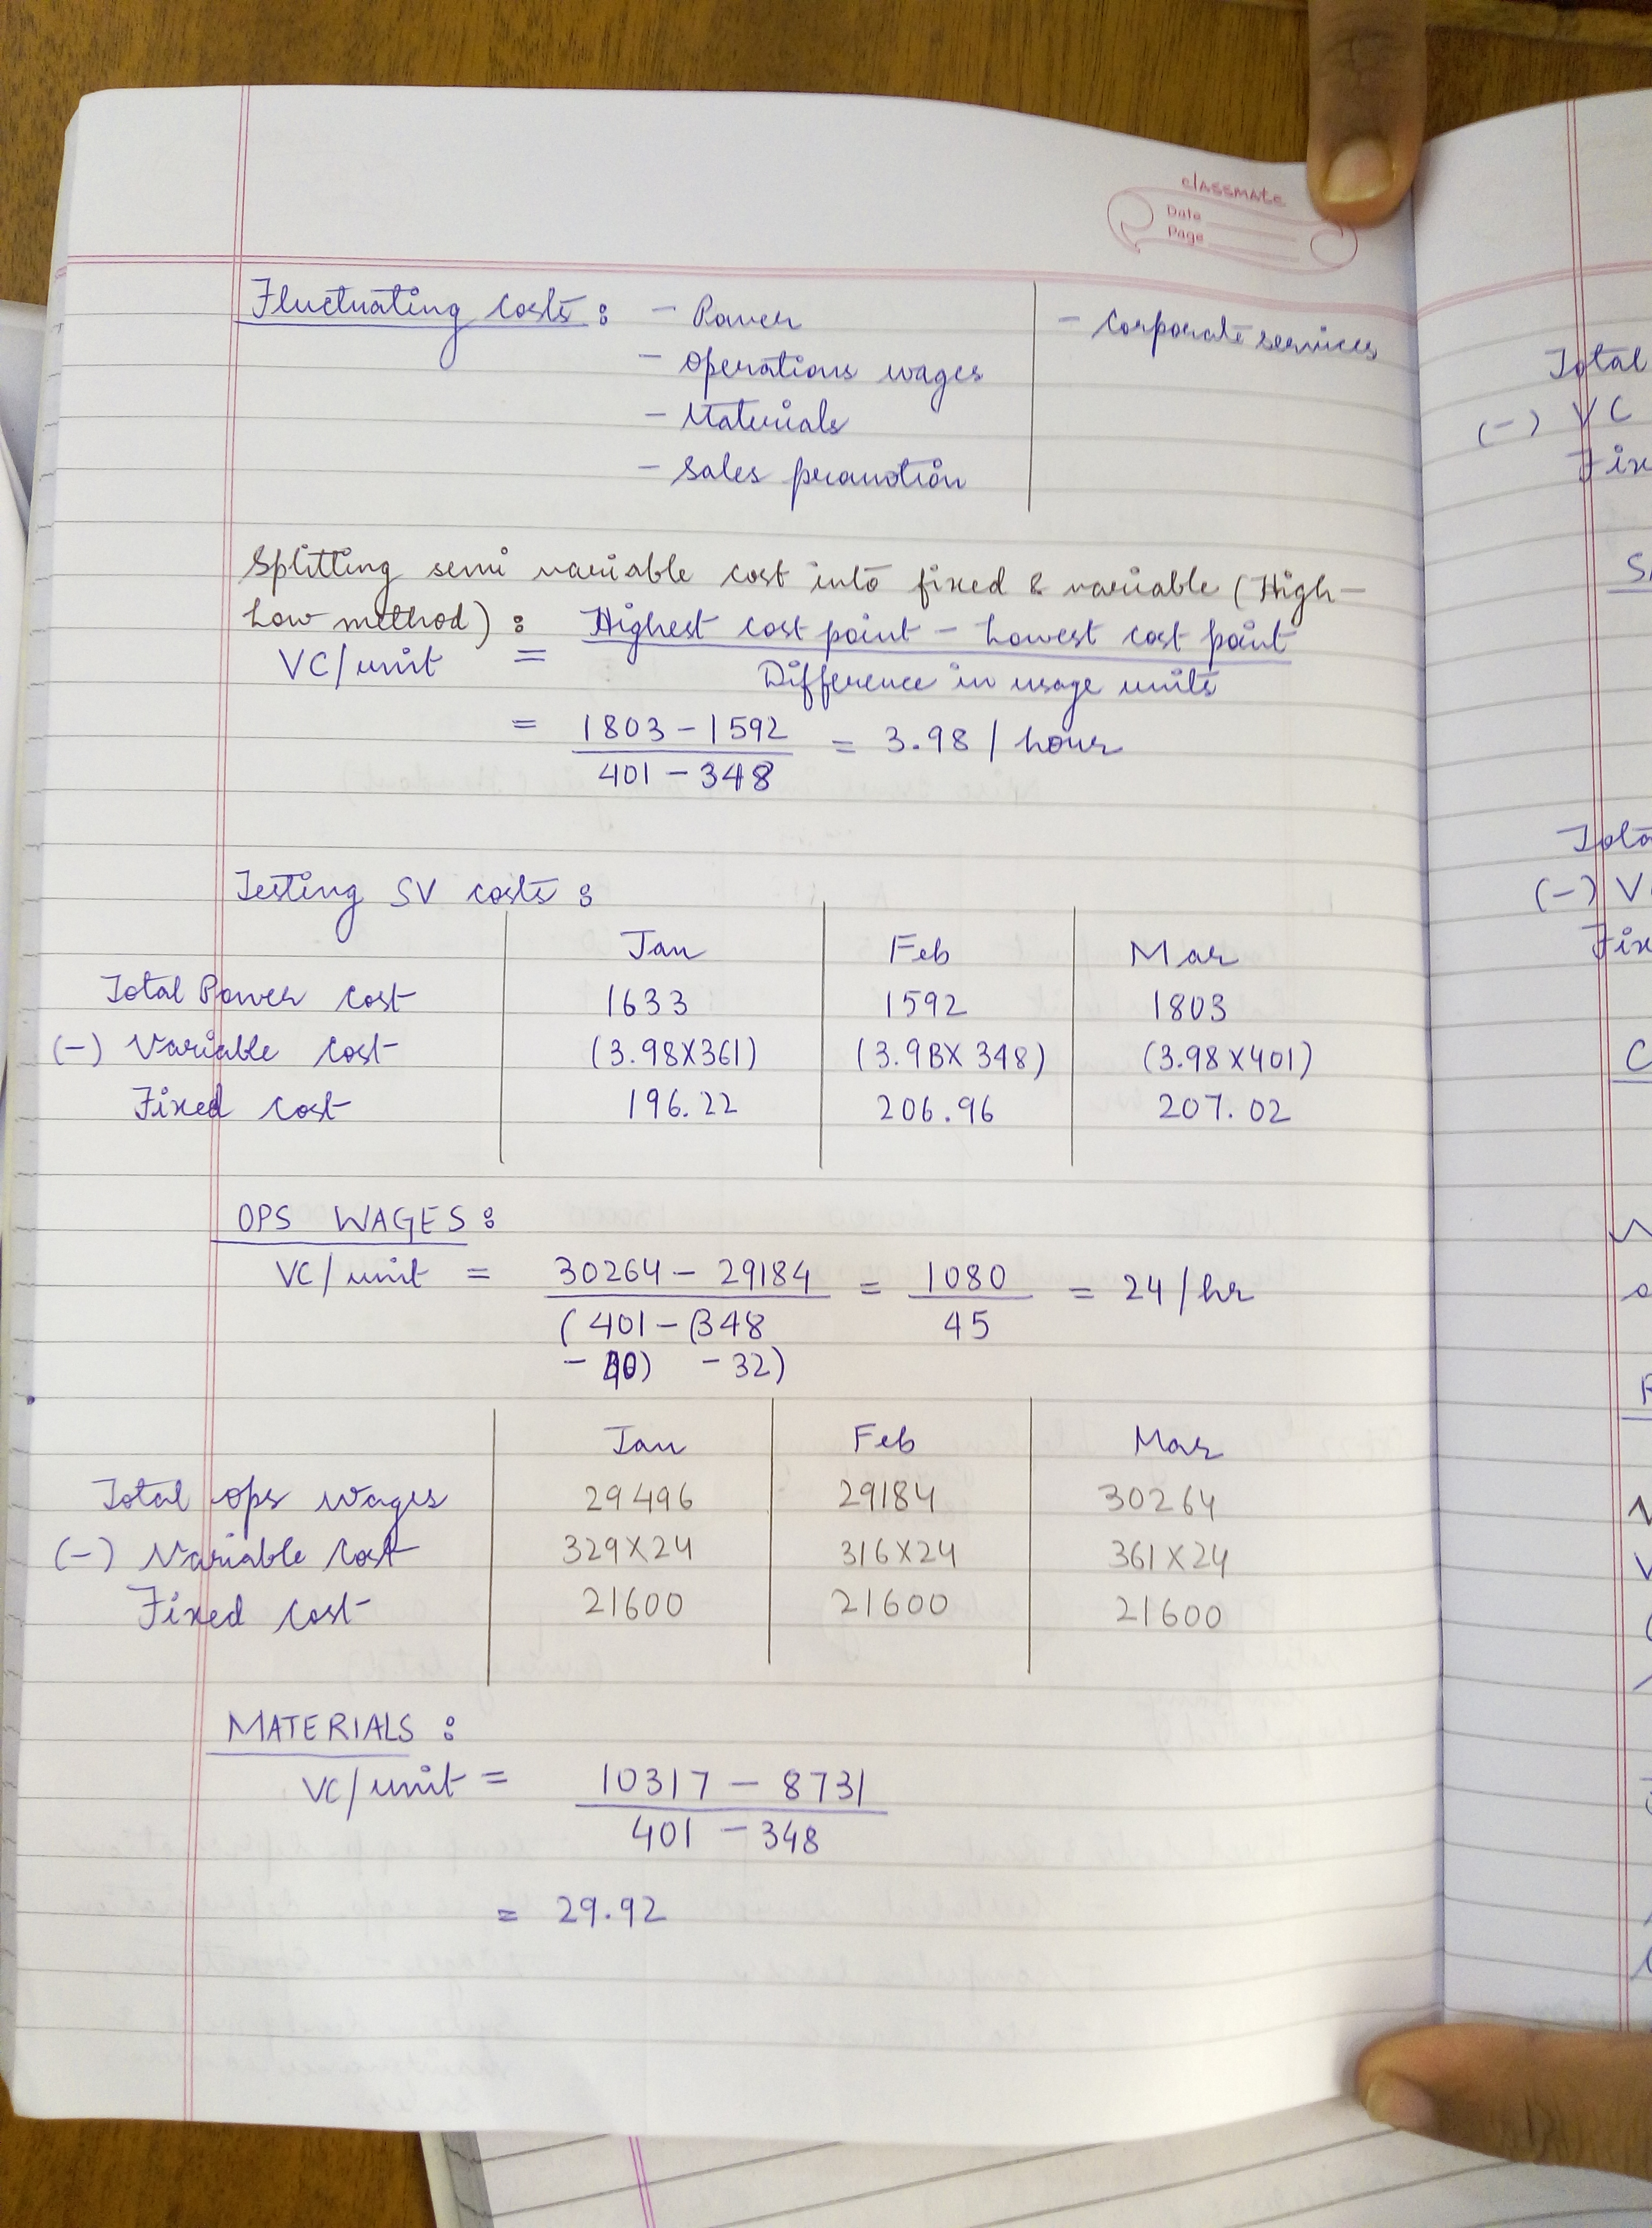 classmate
Date
Page
Fluctuating costs : - Power
- Corporate services
- Operations wages
- Materials
- Sales promotion
Splitting semi variable cost into fixed & variable (High-
Low method) : Highest cost point - Lowest cost point
VC/unit = Difference in usage units
= 1803 - 1592 = 3.98 / hour
401 - 348
Testing SV costs :
Jan Feb Mar
Total Power cost 1633 1592 1803
(-) Variable cost (3.98X361) (3.98X 348) (3.98 X 401)
Fixed cost 196.22 206.96 207.02
OPS WAGES :
VC/unit = 30264 - 29184 = 1080 = 24/hr
(401 - (348 45
- 40) - 32)
Jan Feb Mar
Total ops wages 29496 29184 30264
(-) Variable cost 329X24 316X24 361X24
Fixed cost 21600 21600 21600
MATERIALS :
VC/unit = 10317 - 8731
401 - 348
= 29.92
Total
(-) VC
Fix
(-) V
Fix